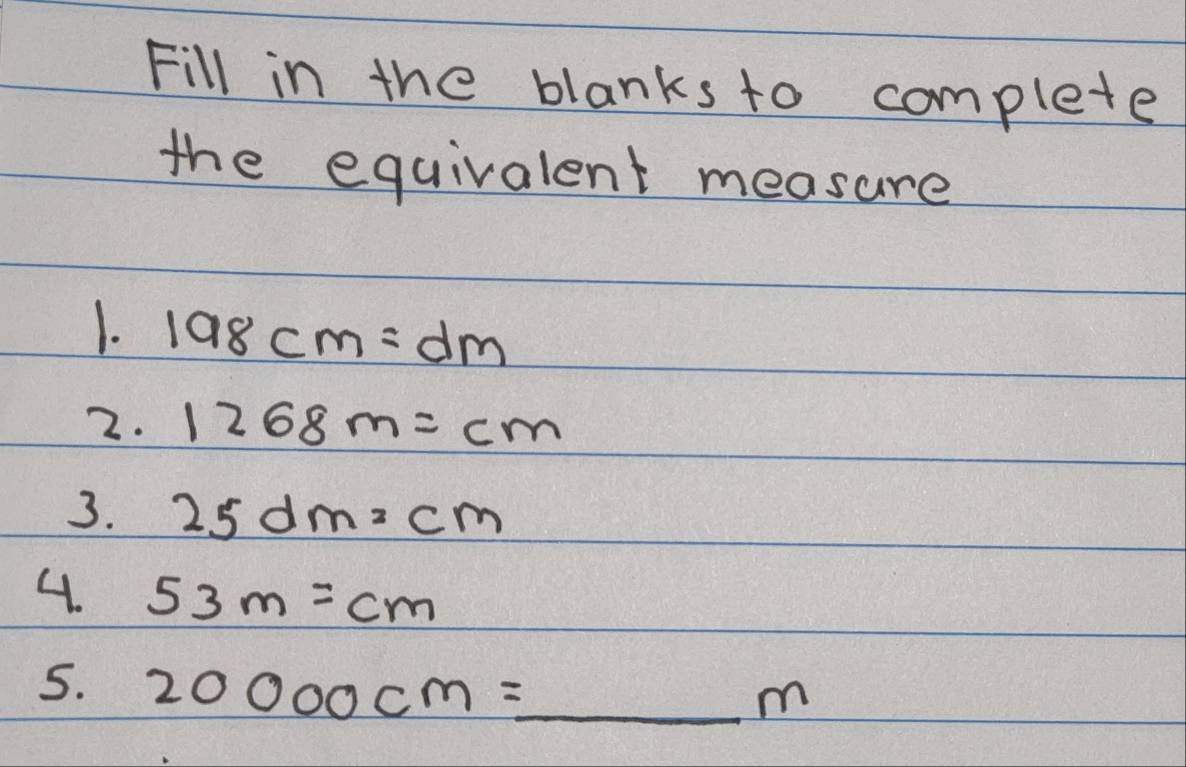 Fill in the blanks to complete
the equivalent measure
1. 198cm = dm
2. 1268m = cm
3. 25dm = cm
4. 53m = cm
5. 20000cm = ______ m